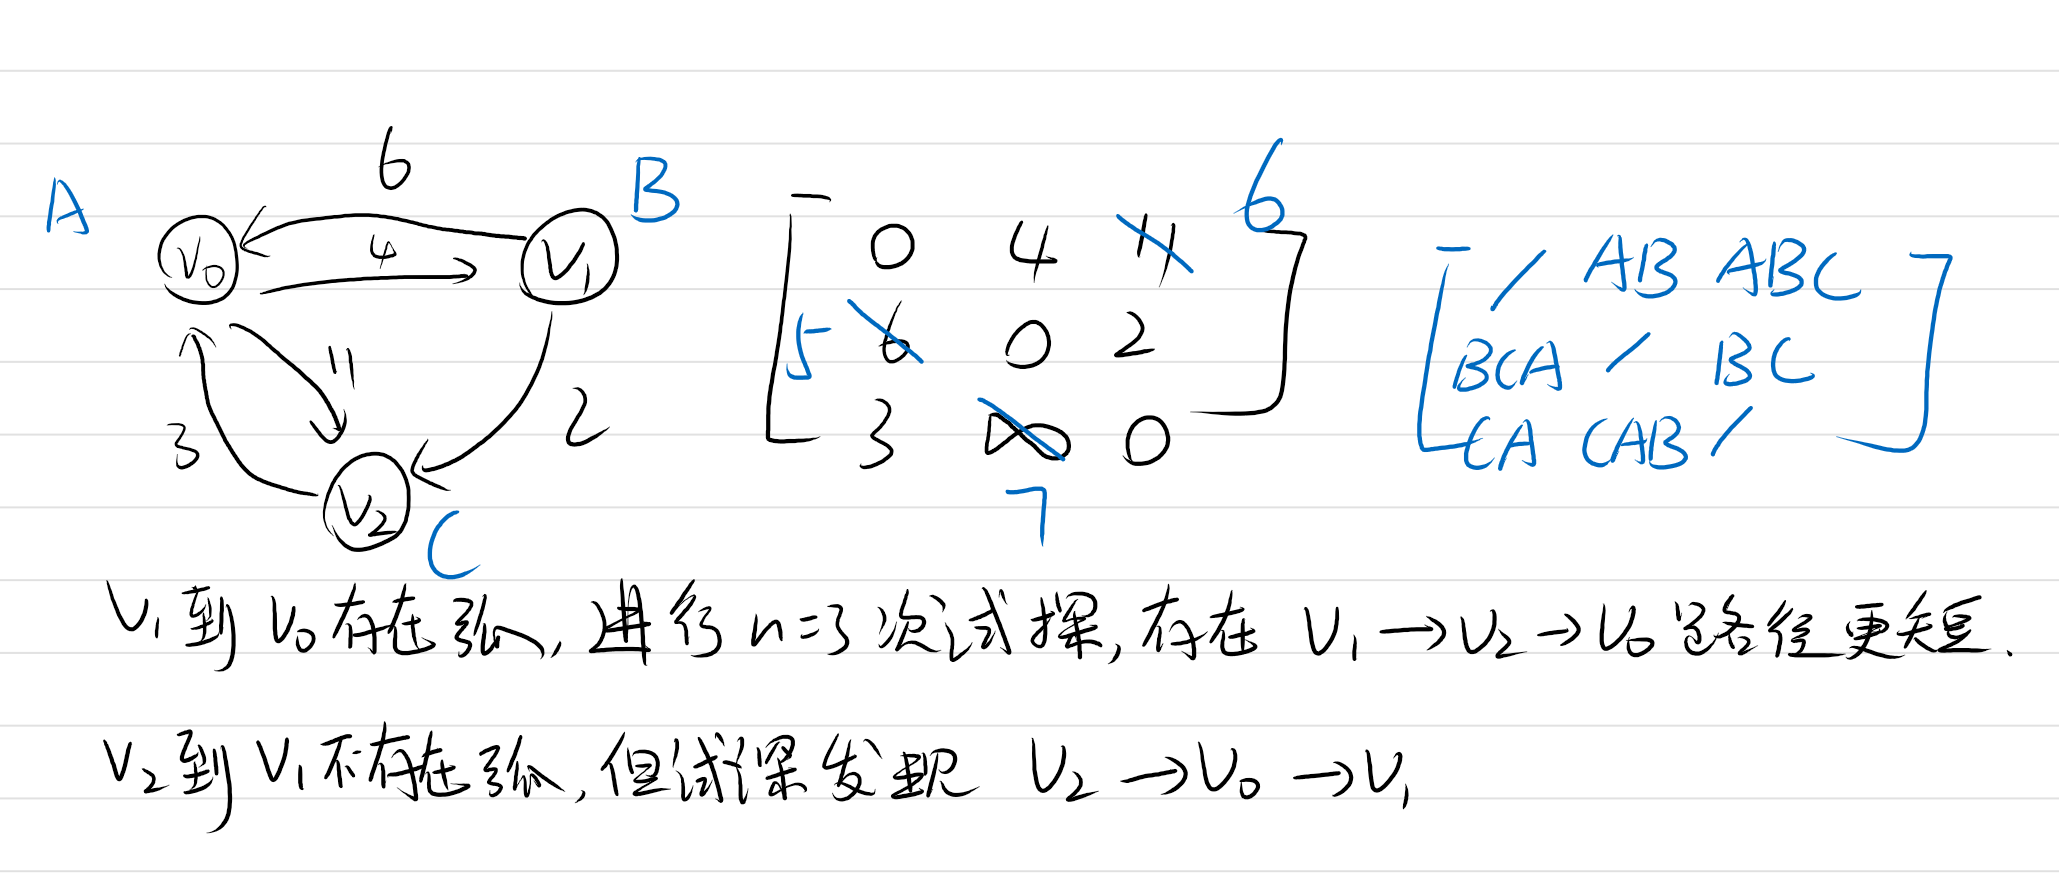 6
A B
V₀ 4 V₁
11
3 2
V₂
C
0 4 11 6
5 6 0 2
3 ∞ 0
7
/ AB ABC
BCA / BC
CA CAB /
V₁到V₀存在弧,进行n=3次试探,存在 V₁→V₂→V₀路径更短.
V₂到V₁不存在弧,但试探发现 V₂→V₀→V₁